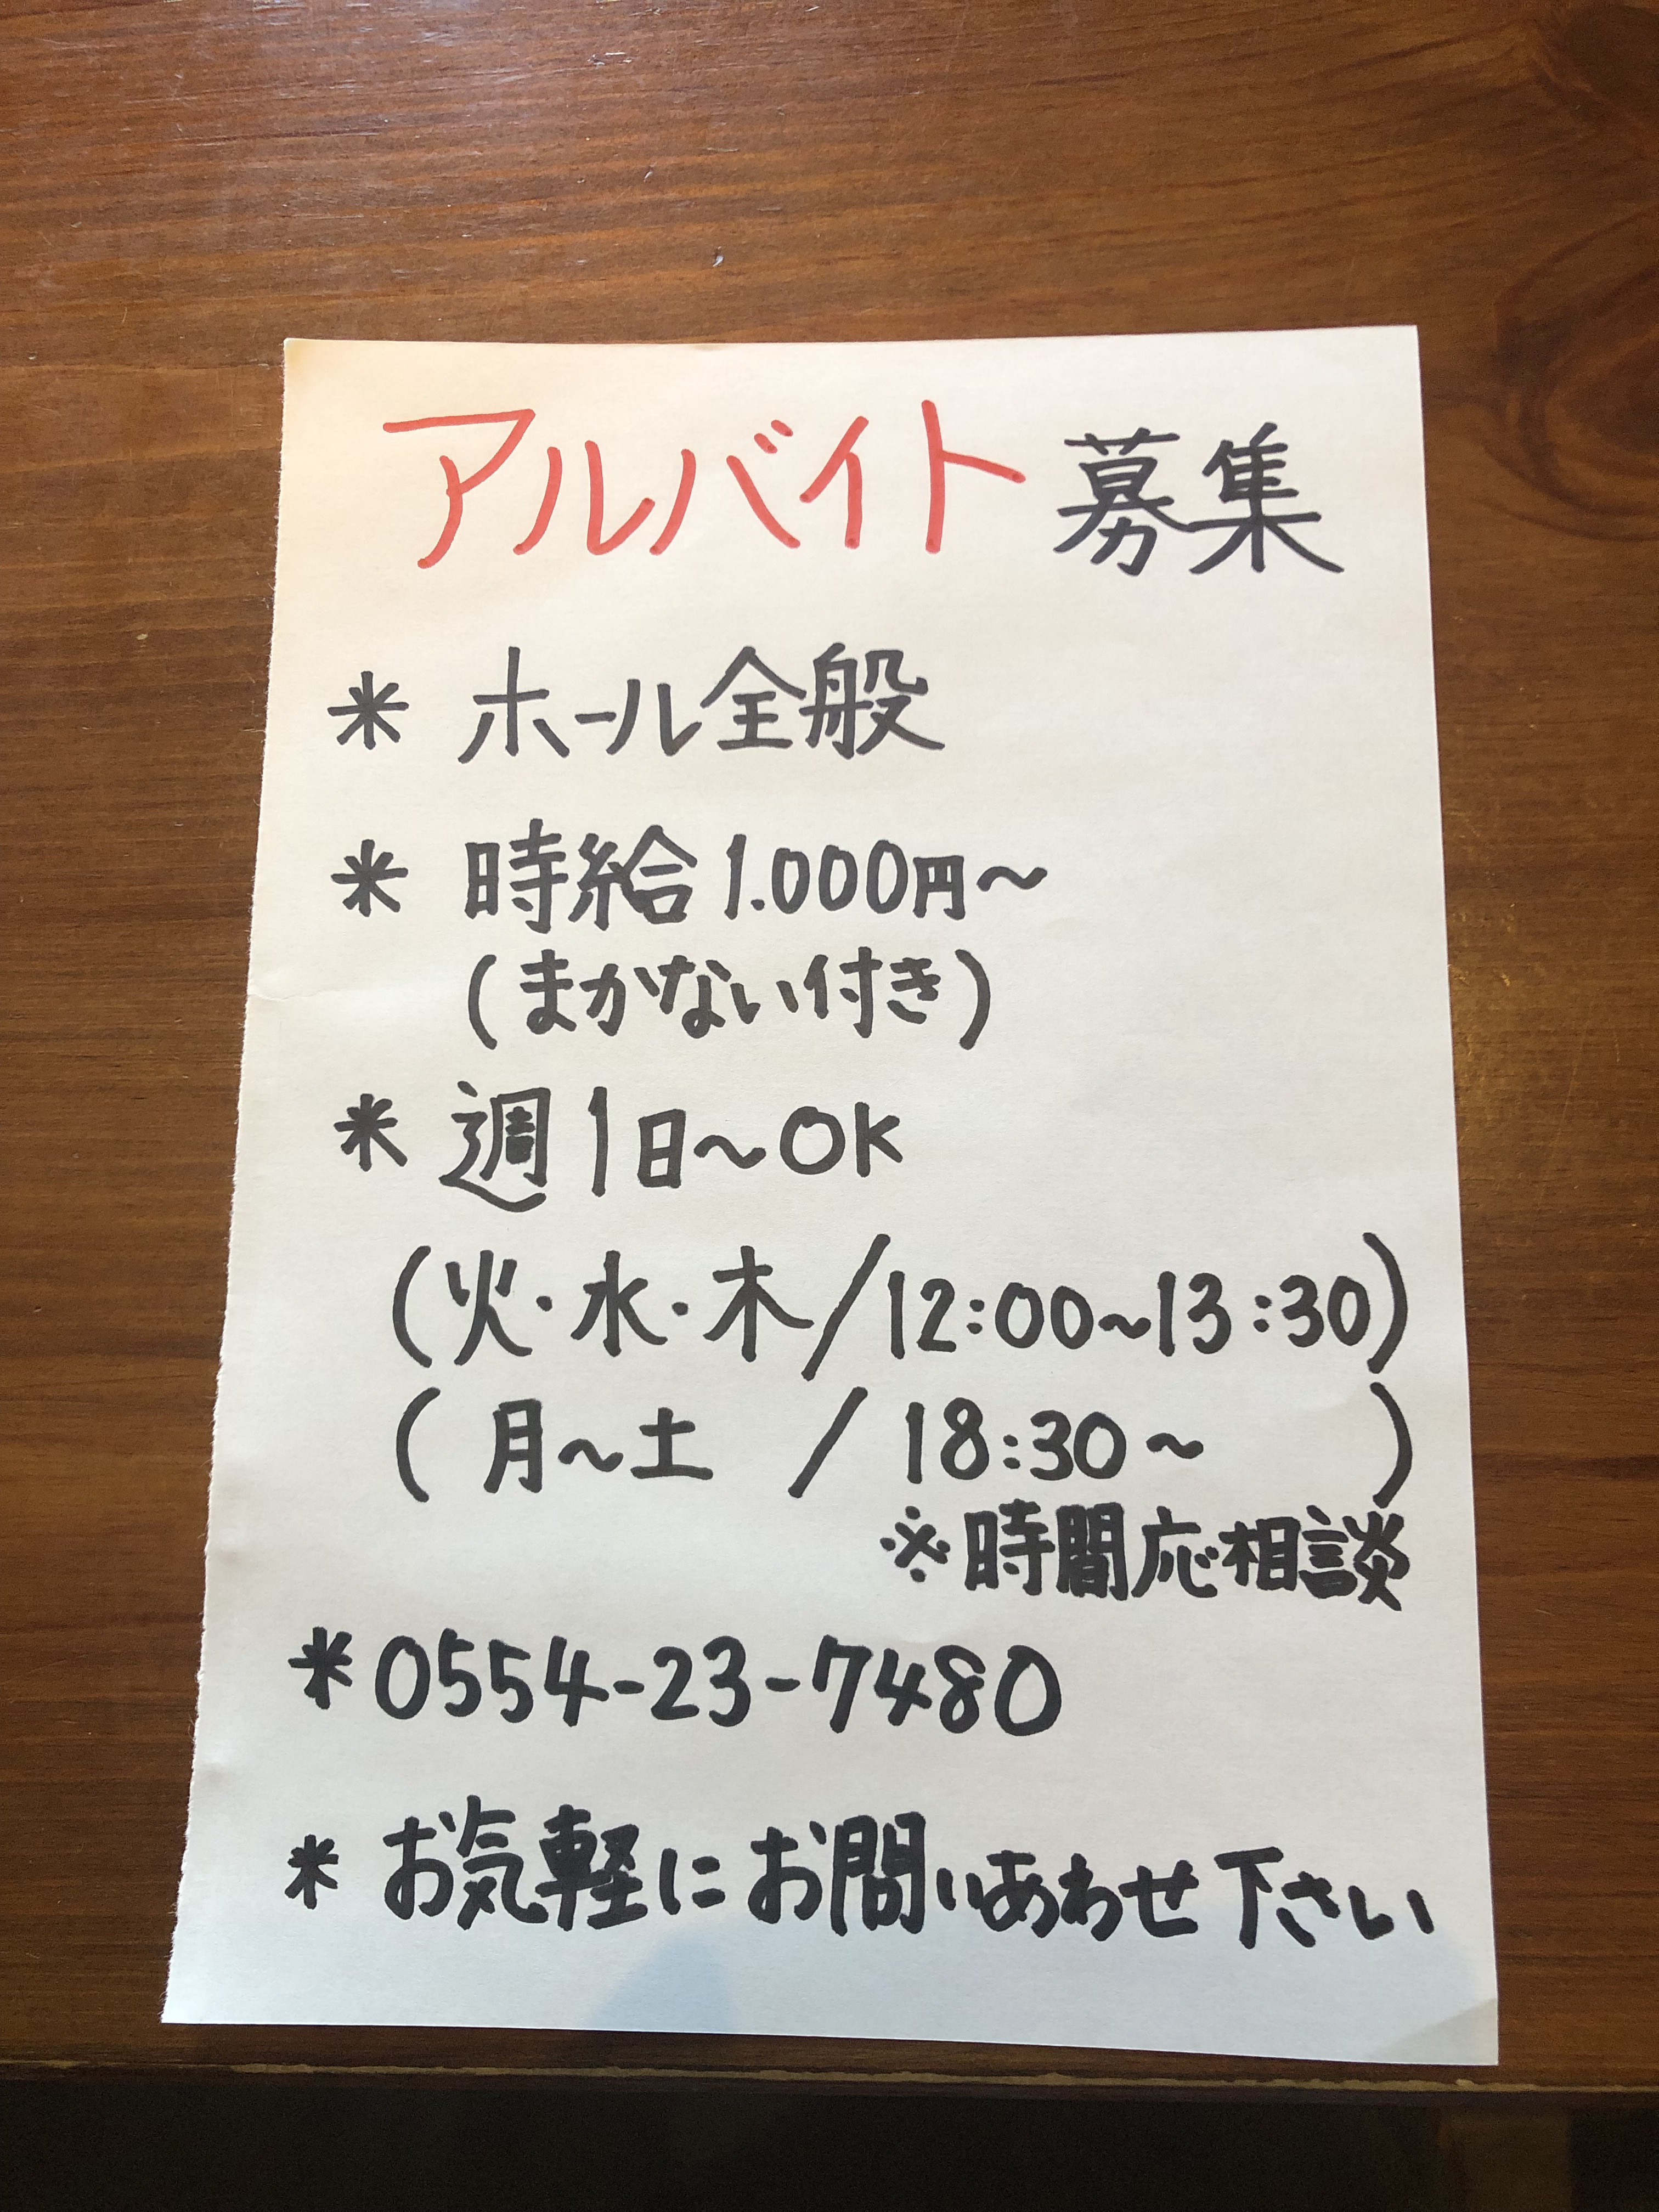 アルバイト募集
* ホール全般
* 時給1.000円〜
(まかない付き)
* 週1日〜OK
(火・水・木/12:00〜13:30)
(月〜土 / 18:30〜 )
※時間応相談
*0554-23-7480
* お気軽にお問いあわせ下さい